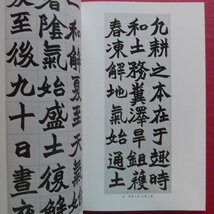 凡耕之本在于趣時
和土務糞澤早鉏穫
春凍解地氣始通土
一和解夏至天氣始
暑陰氣始盛土復解
夏至後九十日晝夜